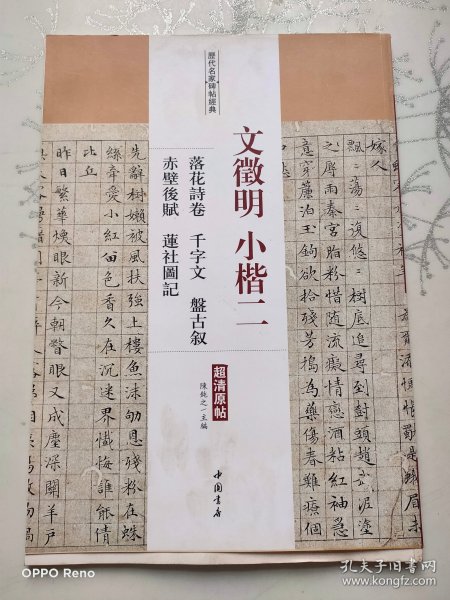 歷代名家碑帖經典
文徵明 小楷二
落花詩卷 千字文 盤古叙
赤壁後賦 蓮社圖記
超清原帖
陳鈍之 主編
中国书店
嫁人
飄飄蕩蕩復悠悠樹底追尋到對頭趙武泥塗
之辱雨秦宫脂粉惜随流癡情戀酒粘紅袖急
意穿簾泊玉鈎欲拾殘芳搗為藥傷春難療個
先辭樹嬾被風扶強上樓魚沫劬恩殘粉在蛛
絲牽愛小紅留色香久在沉迷界懺悔誰能倩
比丘
昨日繁華煥眼新今朝瞥眼又成塵深關羊戶
OPPO Reno
孔夫子旧书网
www.kongfz.com